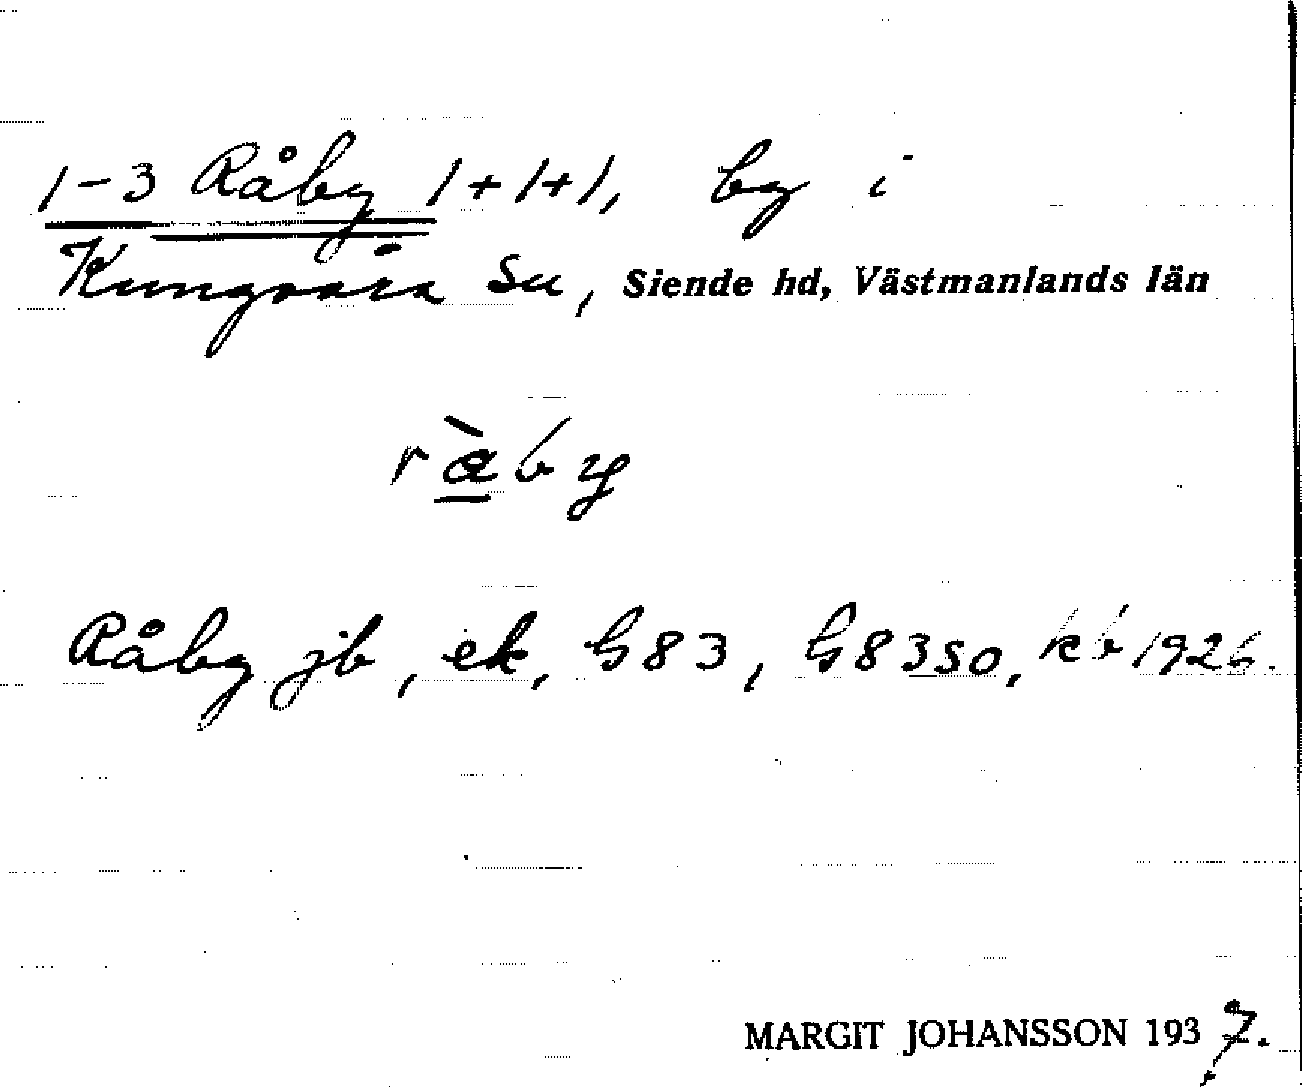 1-3 Råby 1+1+1, by i
Kungsåra sn, Siende hd, Västmanlands län
råby
Råby jb, ek, G83, G83so, kb 1926.
MARGIT JOHANSSON 1937.